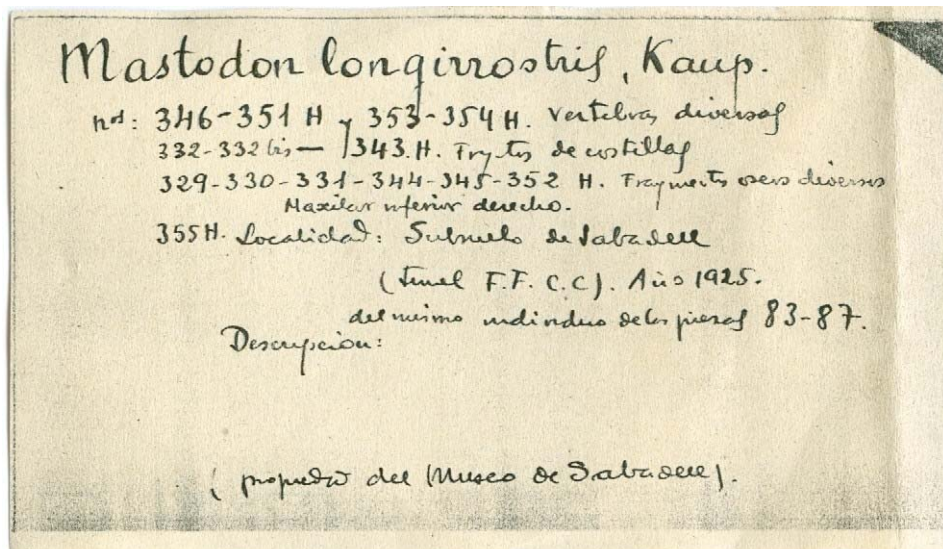 Mastodon longirrostris, Kaup.
nos: 346-351 H y 353-354 H. Vertebras diversas
332-332 bis — 343. H. Frgtos de costillas
329-330-331-344-345-352 H. Fragmentos oseos diversos
Maxilar inferior derecho.
355 H. Localidad: Subsuelo de Sabadell
(tunel F.F. C.C). Año 1925.
del mismo individuo de las piezas 83-87.
Descripcion:
(propiedad del Museo de Sabadell).